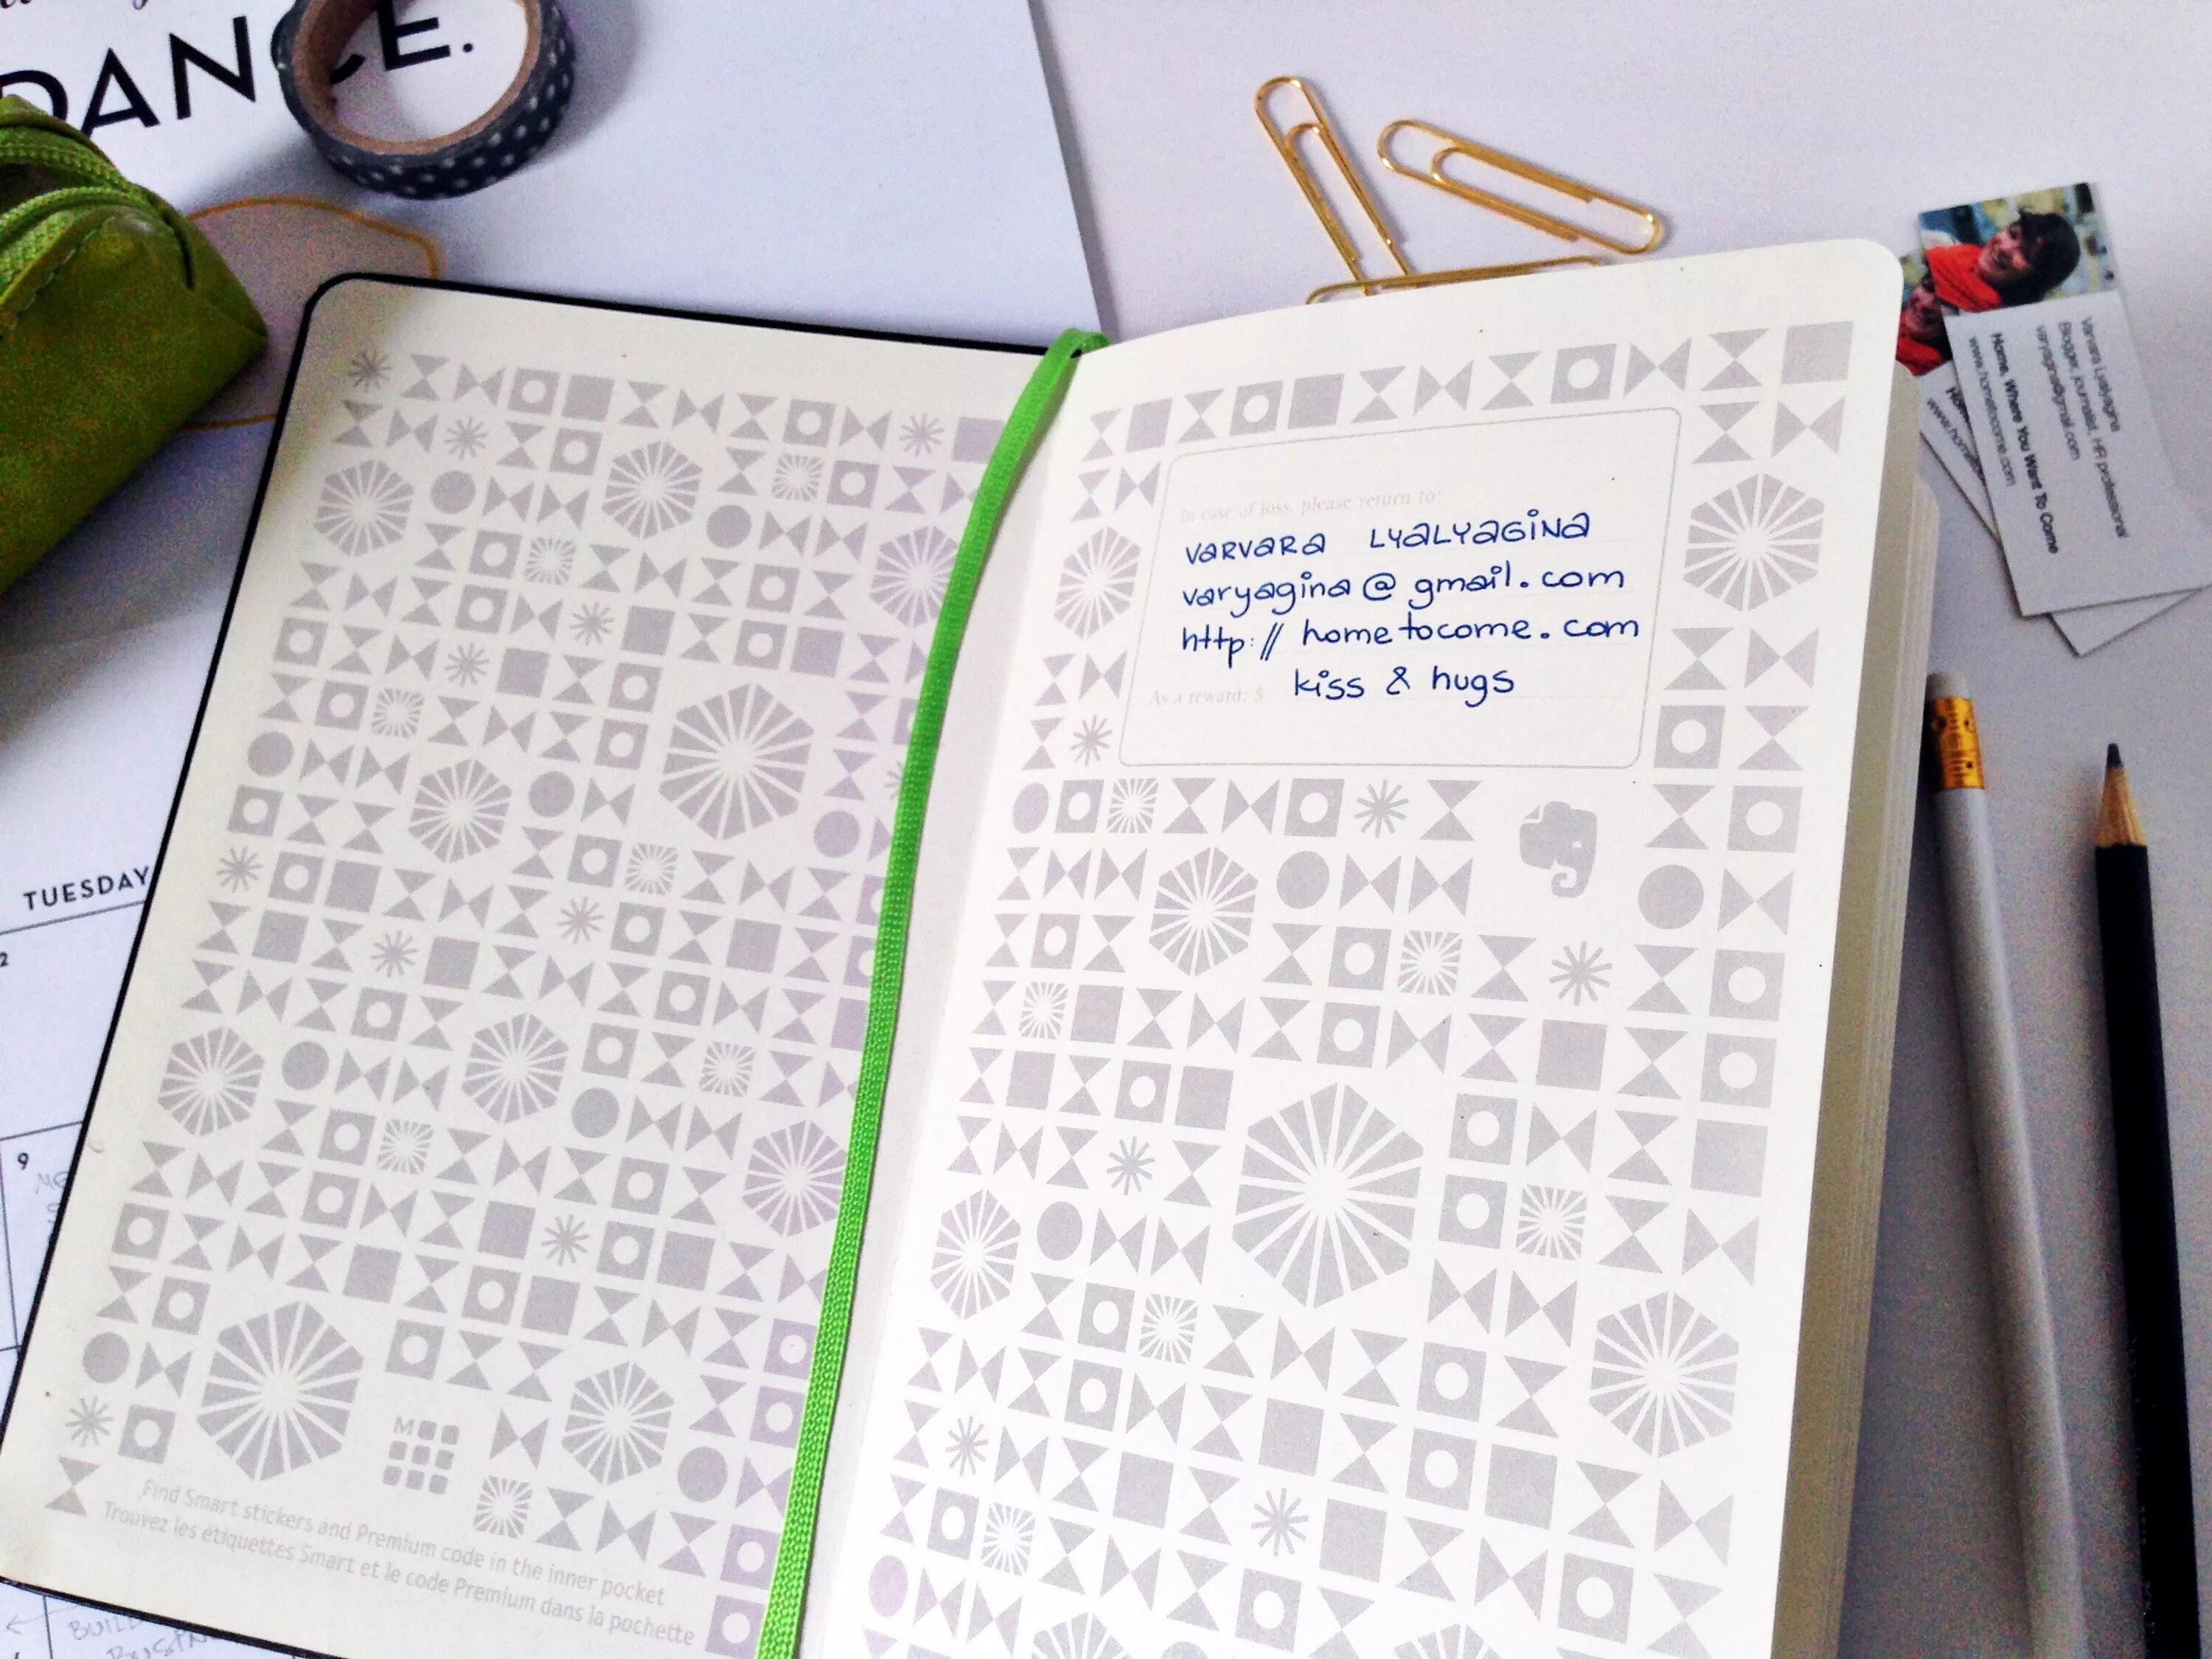 DANCE.
In case of loss, please return to:
VARVARA LYALYAGINA
varyagina@gmail.com
http:// hometocome.com
As a reward: $ kiss & hugs
Varvara Lyalyagina
Blogger, journalist, HR professional
varyagina@gmail.com
Home. Where You Want To Come
www.hometocome.com
TUESDAY
2
9
M
Find Smart stickers and Premium code in the inner pocket
Trouvez les étiquettes Smart et le code Premium dans la pochette